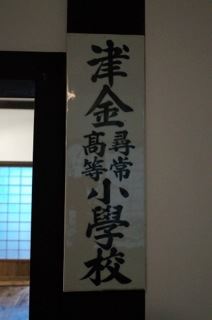 津金尋常髙等小學校